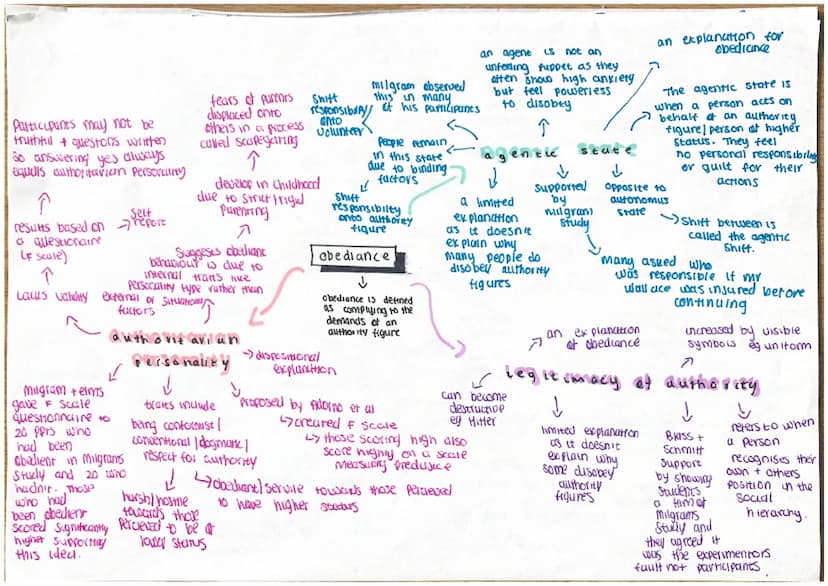 obediance
obediance is defined
as complying to the
demands of an
authority figure
agentic state
an explanation for
obediance
The agentic state is
when a person acts on
behalf of an authority
figure/person of higher
status. They feel
no personal responsibility
or guilt for their
actions
an agent is not an
unfeeling puppet as they
often show high anxiety
but feel powerless
to disobey
milgram observed
this in many
of his participants
Shift
responsibility
onto
volunteer
People remain
in this state
due to binding
factors
Shift
responsibility
onto authority
figure
a limited
explanation
as it doesnt
explain why
many people do
disobey authority
figures
supported
by
milgrams
study
Many asked who
was responsible if mr
wallace was injured before
continuing
opposite to
autonomus
state
Shift between is
called the agentic
shift.
legitimacy of authority
an explanation
of obediance
increased by visible
symbols eg uniform
can become
destructive
eg Hitler
limited explanation
as it doesnt
explain why
some disobey
authority
figures
Blass +
Schmitt
support
by showing
students
a film of
milgrams
study and
they agreed it
was the experimentors
fault not participants.
refers to when
a person
recognises their
own + others
position in the
social
hierarchy.
authoritarian
personality
dispositional
explanation
Suggests obediant
behaviour is due to
internal traits like
personality type rather than
external or situational
factors
develop in childhood
due to strict/rigid
parenting
fears of parents
displaced onto
others in a process
called scapegoating
Lacks validity
results based on
a questionaire
(F scale)
self
report
Participants may not be
truthful + questions written
so answering yes always
equals authoritarian personality
milgram + elms
gave F scale
questionnaire to
20 ppts who
had been
obedient in milgrams
study and 20 who
hadnt. those
who had
been obedient
scored significantly
higher supporting
this idea.
traits include
being conformist/
conventional/dogmatic/
respect for authority
harsh/hostile
towards those
percieved to be of
lower status
obediant/servile towards those percieved
to have higher status
proposed by Adorno et al
created F scale
those scoring high also
score highly on a scale
measuring predujice